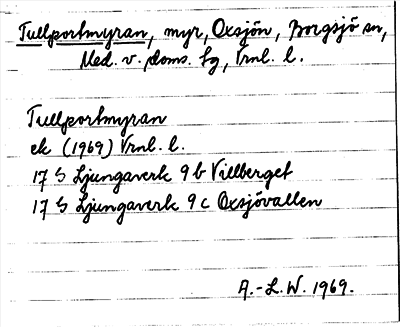 Tullportmyran, myr, Oxsjön, Borgsjö sn,
Med. v. doms. fg, Vrnl. l.
Tullportmyran
ek (1969) Vrnl. l.
17 G Ljungaverk 9 b Villberget
17 G Ljungaverk 9 c Oxsjövallen
A.-L.W. 1969.